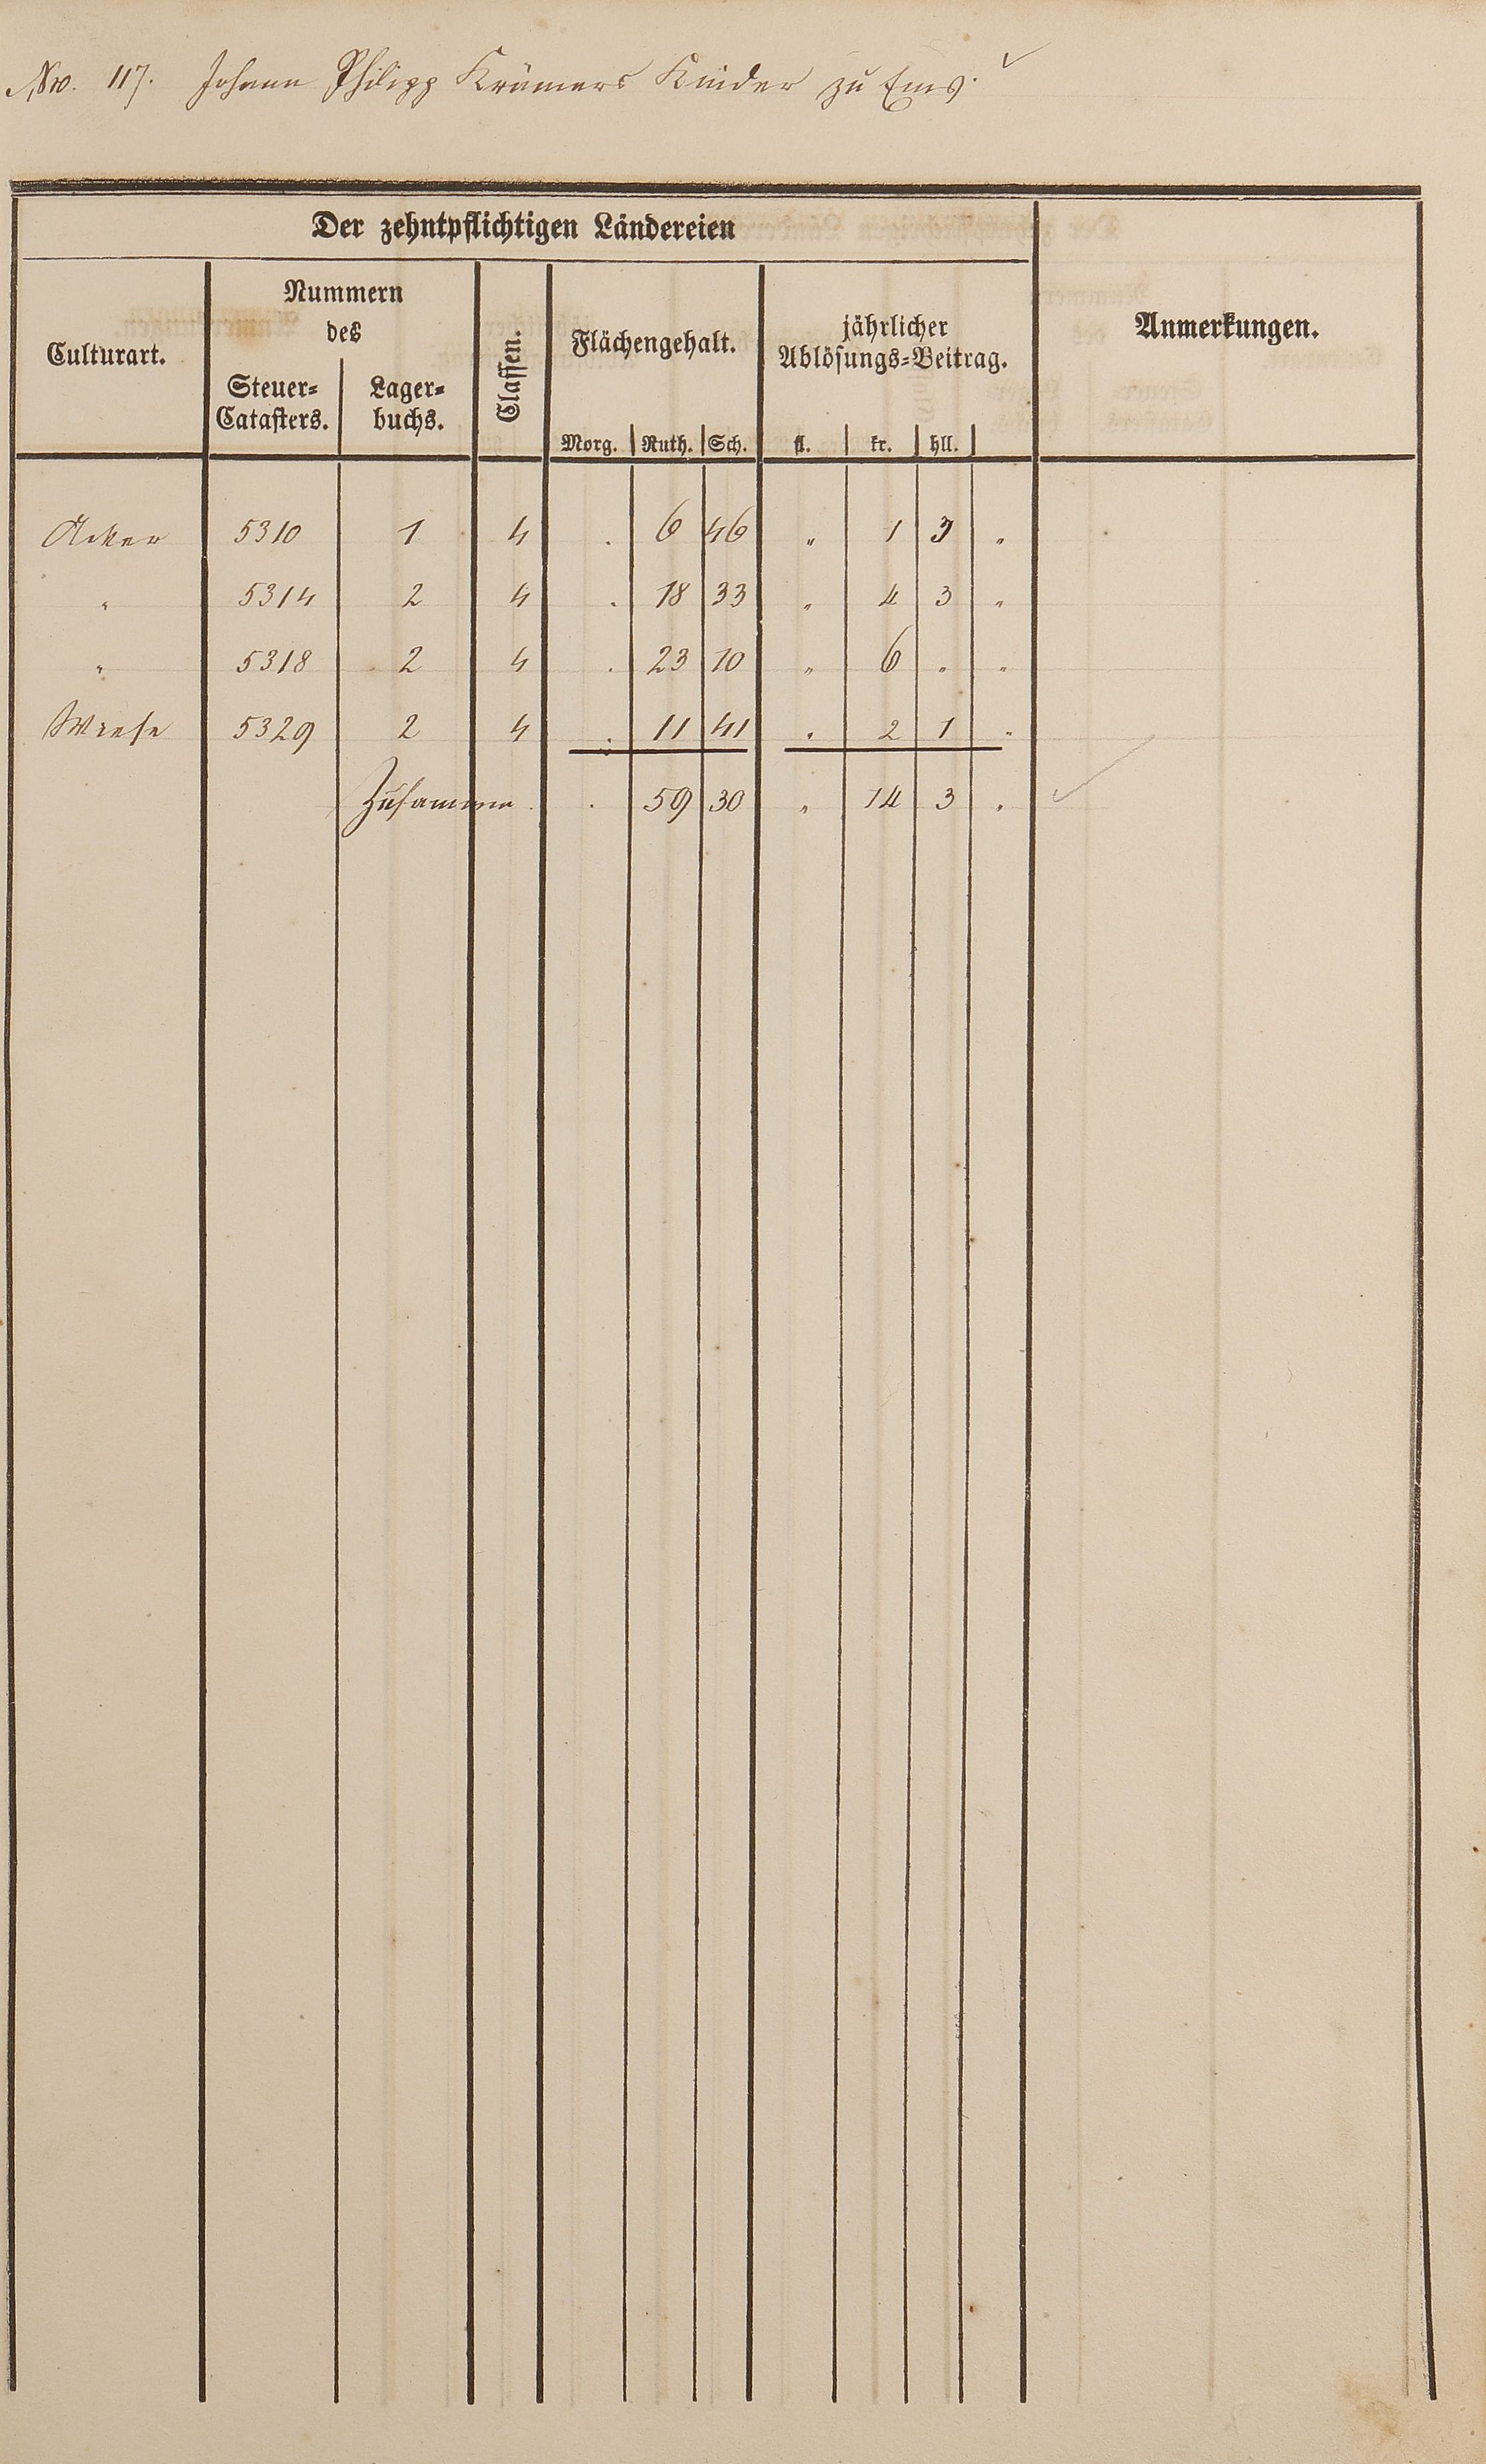 Nro. 117. Johann Philipp Krämers Kinder zu Ems.
Der zehntpflichtigen Ländereien
Culturart. Nummern des Classen. Flächengehalt. jährlicher Ablösungs=Beitrag. Anmerkungen.
Steuer=Catasters. Lager=buchs. Morg. Ruth. Sch. fl. kr. hll.
Acker 5310 1 4 . 6 46 " 1 3 "
" 5314 2 4 . 18 33 " 4 3 "
" 5318 2 4 . 23 10 " 6 " "
Wiese 5329 2 4 . 11 41 " 2 1 "
Zusammen . . 59 30 " 14 3 "